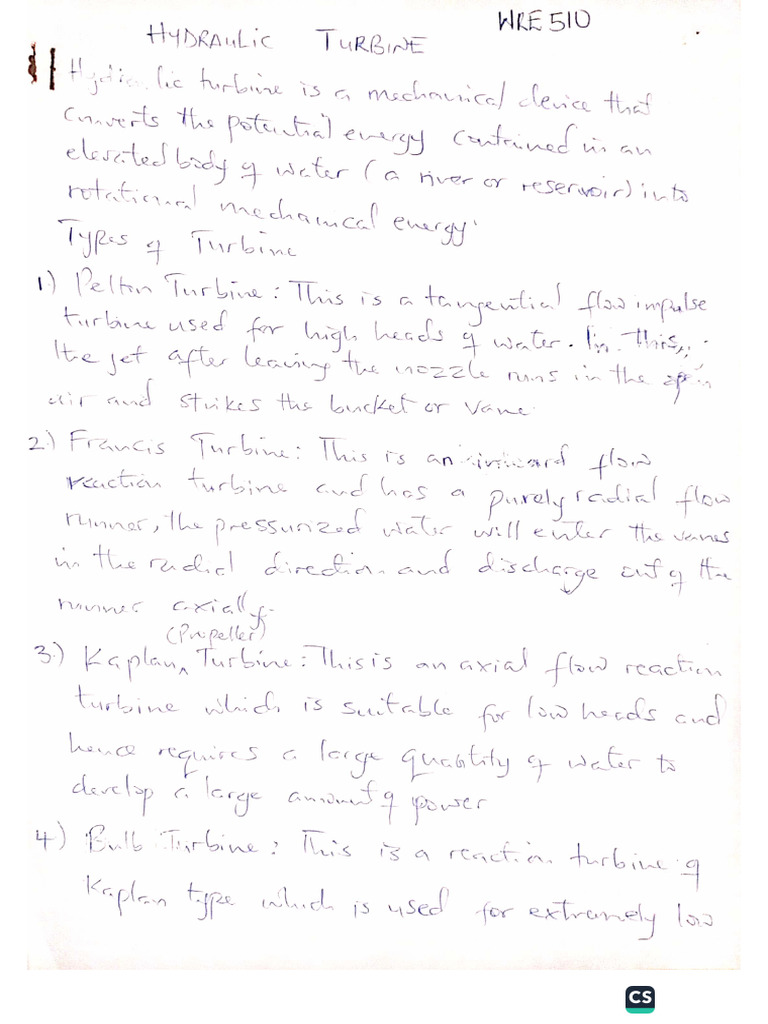 WRE 510
HYDRAULIC TURBINE
Hydraulic turbine is a mechanical device that
converts the potential energy contained in an
elevated body of water (a river or reservoir) into
rotational mechanical energy.
Types of Turbine
1.) Pelton Turbine: This is a tangential flow impulse
turbine used for high heads of water. In this,
the jet after leaving the nozzle runs in the open
air and strikes the bucket or vane.
2.) Francis Turbine: This is an inward flow
reaction turbine and has a purely radial flow
runner, the pressurized water will enter the vanes
in the radial direction and discharge out of the
runner axially.
(Propeller)
3.) Kaplan ^ Turbine: This is an axial flow reaction
turbine which is suitable for low heads and
hence requires a large quantity of water to
develop a large amount of power
4) Bulb Turbine: This is a reaction turbine of
Kaplan type which is used for extremely low
CS